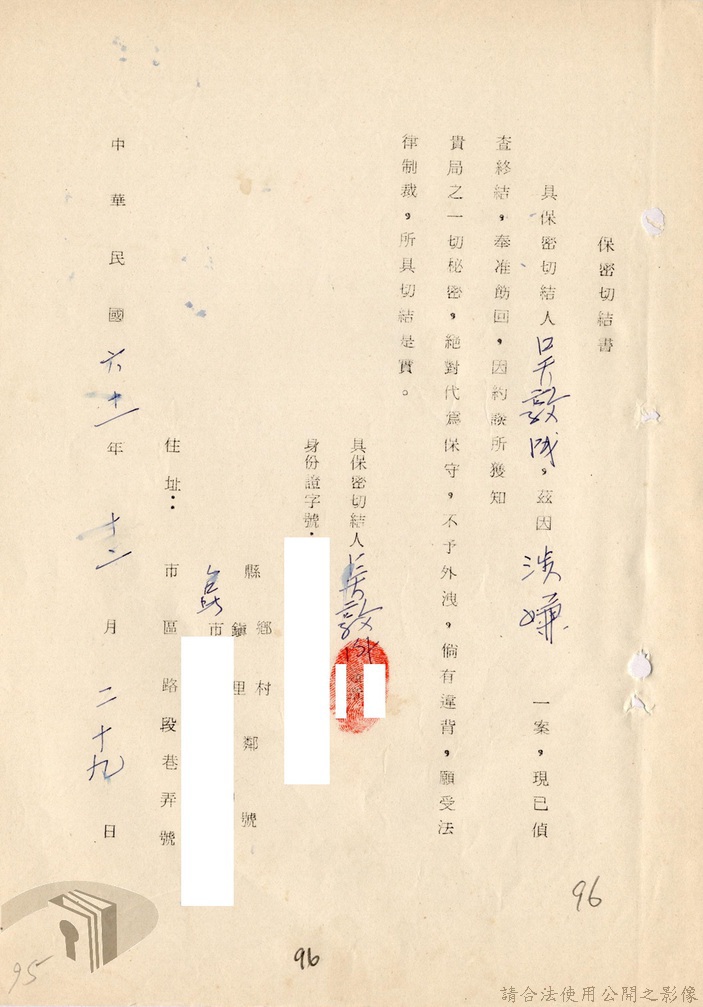 保密切結書
具保密切結人吳敦成，茲因涉嫌一案，現已偵
查終結，奉准飭回，因約談所獲知
貴局之一切秘密，絕對代為保守，不予外洩，倘有違背，願受法
律制裁，所具切結是實。
具保密切結人吳敦
身份證字號：
縣 鄉 村 鄰 號
市 鎮 里
住址：
市 區 路 段 巷 弄 號
中華民國六十一年十二月二十九日
96
96
95
請合法使用公開之影像